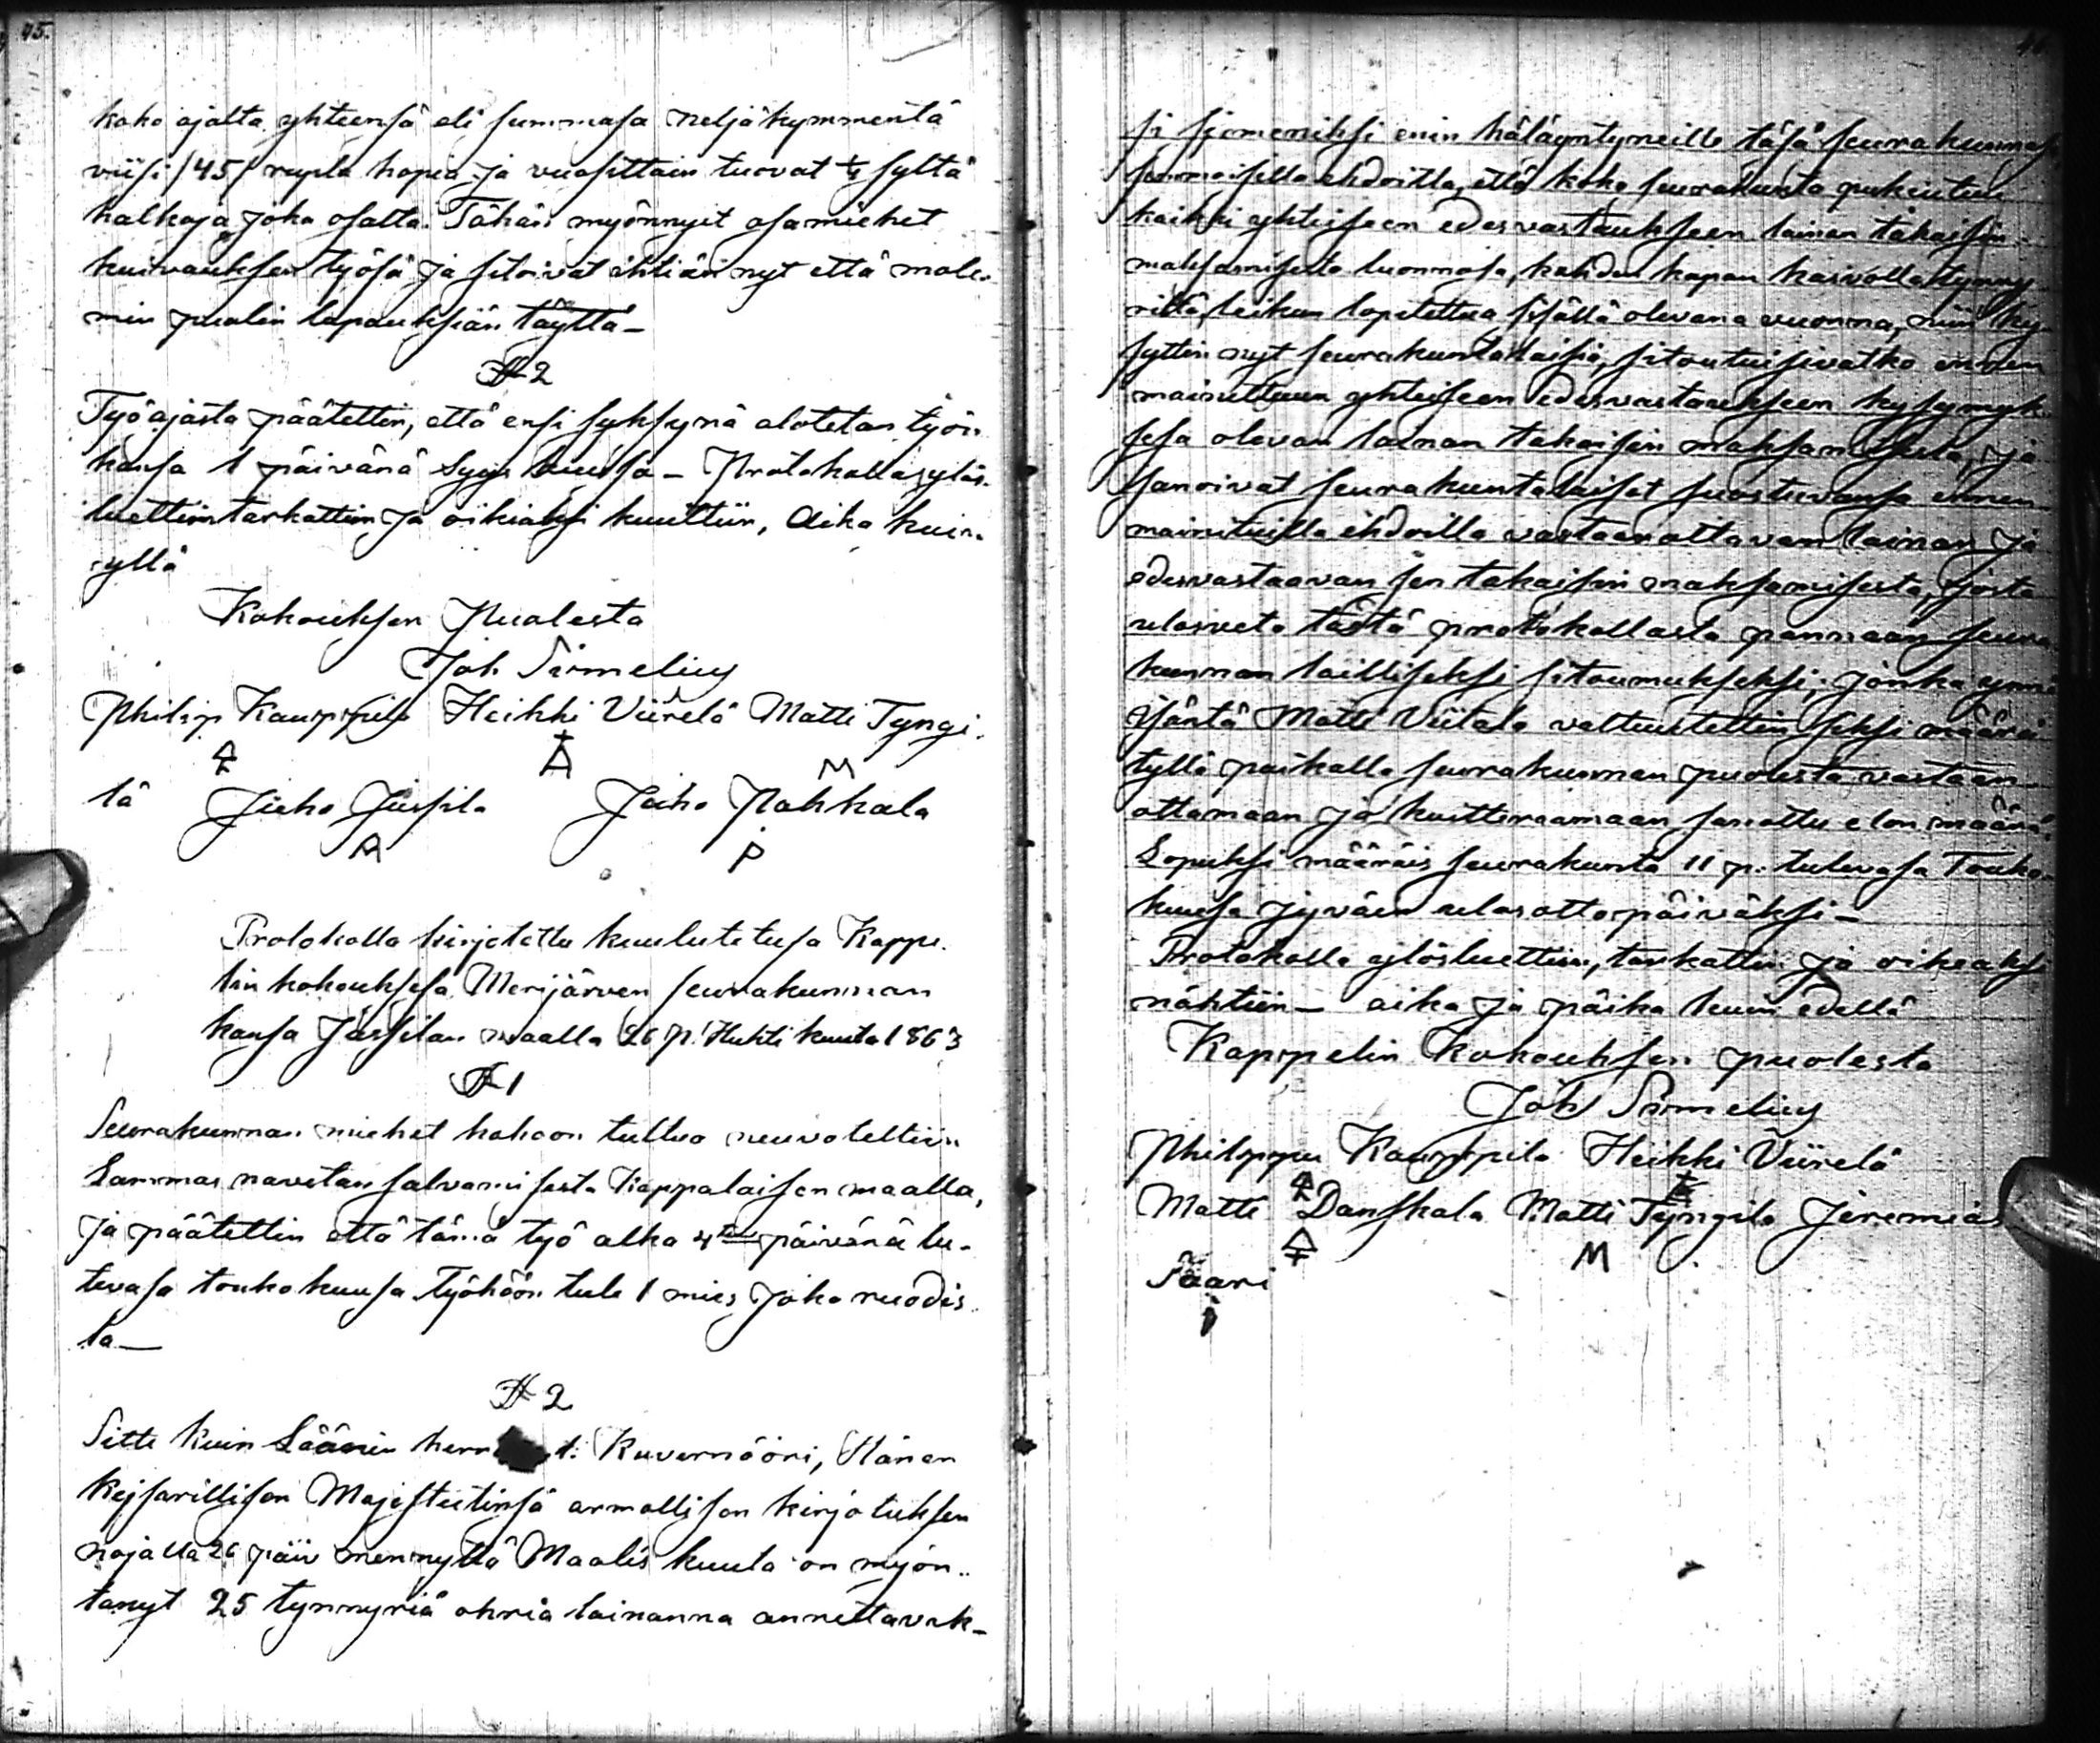 45.
koko ajalta yhteensä eli summasa neljäkymmentä
viisi /45/ rupla hopia ja vuosittain tuovat ½ syltä
halkoja joka osalta. Tähän myönnyit osamiehet
kuivauksen työsä ja sitoivat ihtiän nyt että molem-
min puolin lupauksiän täyttä –
§ 2
Työajasta päätettin, että ensi syksynä alotetan työn
kansa 1 päivänä Syys kuusa – Protokolla ylös-
luettiin tarkattiin ja oikiaksi kuultiin, Aika kuin
yllä
Kokouksen Puolesta
Joh Sirmelius
Philip Kauppila Heikki Viirelä Matti Tyngi-
lä Juho Jussila Juho Pahkala
M
A P
Protokolla kirjotettu kuulutetusa Kappe-
lin kokouksesa Merijärven seurakunnan
kansa Jussilan maalla 26 p: Huhti kuuta 1863
§ 1
Seurakunnan miehet kokoon tultua neuvoteltiin
Lammas navetan salvamisesta Kappalaisen maalla,
ja päätettin että tämä työ alka 4 päivänä tu-
levasa toukokuusa Työhöön tule 1 mies joka ruodis-
ta –
§ 2
Sitte kuin Läänin herr t. Kuvernööri, Hänen
Kejsarillisen Majesteetinsä armollisen kirjotuksen
nojalla 26 päiv mennyttä Maalis kuuta on myön-
tänyt 25 tynnyriä ohria lainanna annettavak-
si sjemeniksi enin hätäyntyneille täsä seurakunnasa
semmoisilla ehdoilla, että koko seurakunta
kaikki yhteiseen edesvastaukseen lainan takaisin-
maksamisesta luonnosa, kahden kapan kasvolla tynny-
riltä, leikun lopetettua sisällä olevana vuonna, niin ky-
syttin nyt seurakuntalaisia, sitoutuisivatko ennen
mainittuun yhteiseen edesvastaukseen kysymyk-
sesä olevan lainan takaisin maksamisesta, ja
sanoivat seurakuntalaiset suostuvansa ennen
mainituilla ehdoilla vastaanottavan lainan ja
edesvastaavan sen takaisin maksamisesta, josta
ulosveto tästä protokollasta pannaan seura-
kunnan lailliseksi sitoumukseksi; jonka
Isäntä Matti Viitala valtuutettin seksi määrä-
tyllä paikalla seurakunnan puolesta vastaan
ottamaan ja kuitteraamaan sanottu elon määrä.
Lopuksi määräis seurakunta 11 p: tulevasa Touko-
kuusa jyväin ulosottopäiväksi –
Protokolla ylösluettiin, tarkattiin ja oikeaksi
nähtiin – aika ja paika kuin edellä
Kappelin Kokouksen puolesta
Joh Sirmelius
Philippu Kauppila Heikki Viirelä
Matti Danskala Matti Tyngilä Jeremias
M
Saari